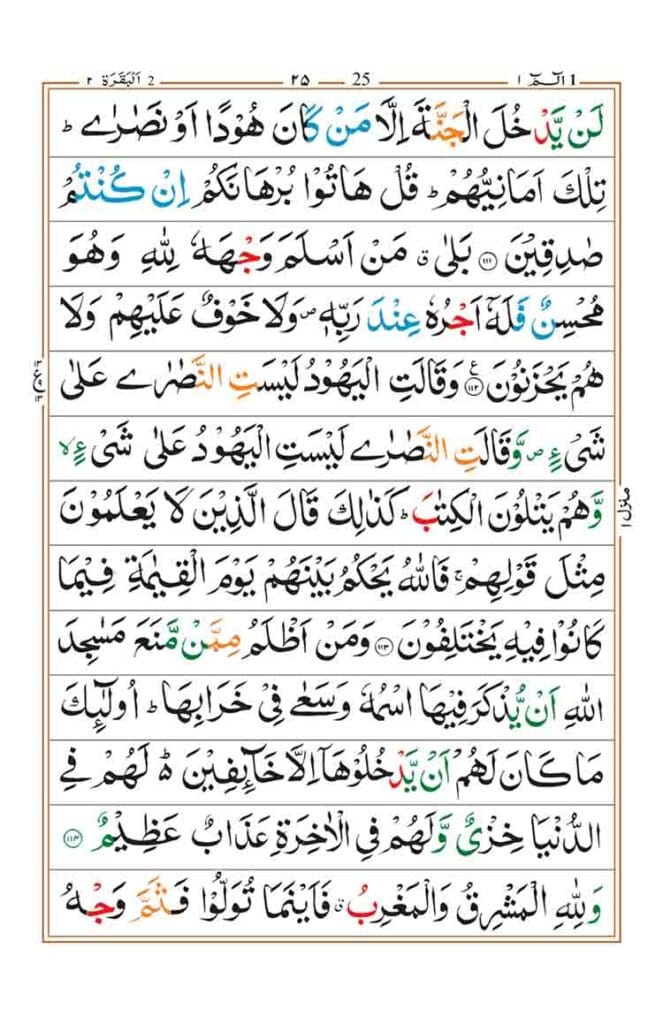 2 اَلْبَقَرَة ٢ 25 ٢٥ 1 الٓمّٓ ١
لَنْ يَّدْخُلَ الْجَنَّةَ اِلَّا مَنْ كَانَ هُوْدًا اَوْ نَصٰرٰى ؕ
تِلْكَ اَمَانِيُّهُمْ ؕ قُلْ هَاتُوْا بُرْهَانَكُمْ اِنْ كُنْتُمْ
صٰدِقِيْنَ ﴿۱۱۱﴾ بَلٰى ۗ مَنْ اَسْلَمَ وَجْهَهٗ لِلّٰهِ وَهُوَ
مُحْسِنٌ فَلَهٗۤ اَجْرُهٗ عِنْدَ رَبِّهٖ ۪ وَلَا خَوْفٌ عَلَيْهِمْ وَلَا
هُمْ يَحْزَنُوْنَ ﴿۱۱۲﴾ وَقَالَتِ الْيَهُوْدُ لَيْسَتِ النَّصٰرٰى عَلٰى
شَىْءٍ ۪ وَّقَالَتِ النَّصٰرٰى لَيْسَتِ الْيَهُوْدُ عَلٰى شَىْءٍ ۙ
وَّهُمْ يَتْلُوْنَ الْكِتٰبَ ؕ كَذٰلِكَ قَالَ الَّذِيْنَ لَا يَعْلَمُوْنَ
مِثْلَ قَوْلِهِمْ ۚ فَاللّٰهُ يَحْكُمُ بَيْنَهُمْ يَوْمَ الْقِيٰمَةِ فِيْمَا
كَانُوْا فِيْهِ يَخْتَلِفُوْنَ ﴿۱۱۳﴾ وَمَنْ اَظْلَمُ مِمَّنْ مَّنَعَ مَسٰجِدَ
اللّٰهِ اَنْ يُّذْكَرَ فِيْهَا اسْمُهٗ وَسَعٰى فِىْ خَرَابِهَا ؕ اُولٰٓئِكَ
مَا كَانَ لَهُمْ اَنْ يَّدْخُلُوْهَاۤ اِلَّا خَآئِفِيْنَ ؕ۬ لَهُمْ فِى
الدُّنْيَا خِزْىٌ وَّلَهُمْ فِى الْاٰخِرَةِ عَذَابٌ عَظِيْمٌ ﴿۱۱۴﴾
وَلِلّٰهِ الْمَشْرِقُ وَالْمَغْرِبُ ۗ فَاَيْنَمَا تُوَلُّوْا فَثَمَّ وَجْهُ
منزل ١